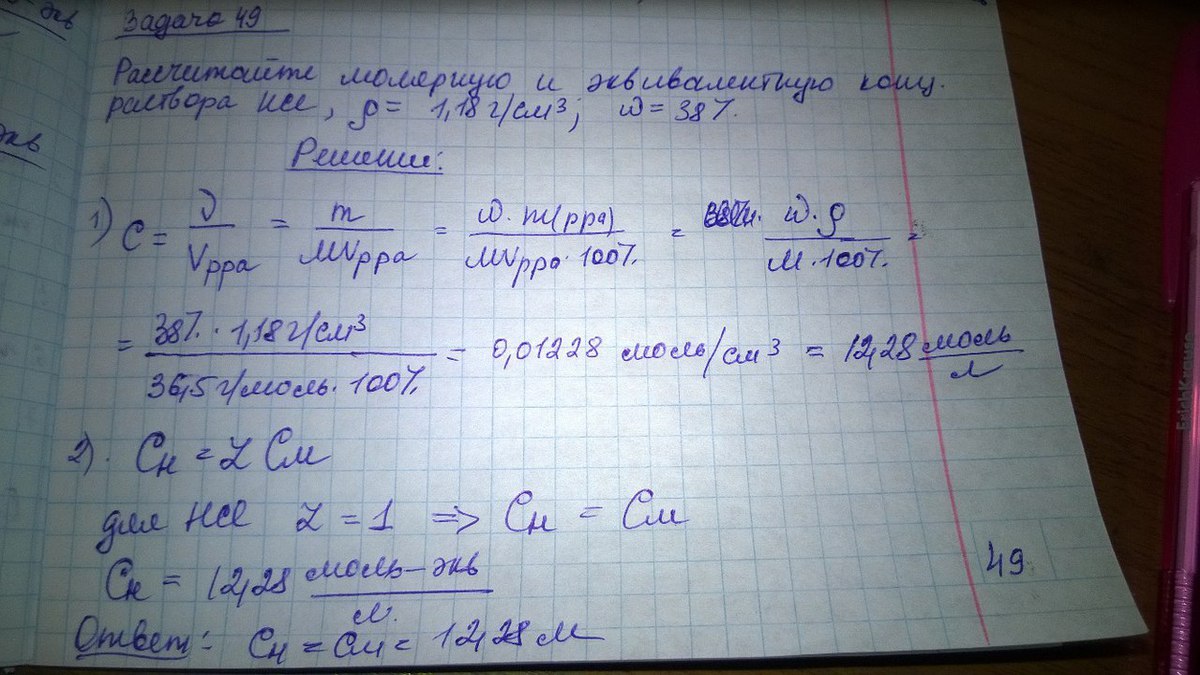 Задача 49
Рассчитайте молярную и эквивалентную конц.
раствора HCl, ρ = 1,18 г/см³; ω = 38%.
Решение:
1) C = ν/Vрра = m/MVрра = ω·m(рра)/MVрра·100% = ω·ρ/M·100% =
= 38%·1,18 г/см³/36,5 г/моль·100% = 0,01228 моль/см³ = 12,28 моль/л
2). Cн = Z Cм
для HCl Z = 1 => Cн = Cм
Cн = 12,28 моль-экв/л.
Ответ: Cн = Cм = 12,28 м
49
экв
экв
ErichKrause